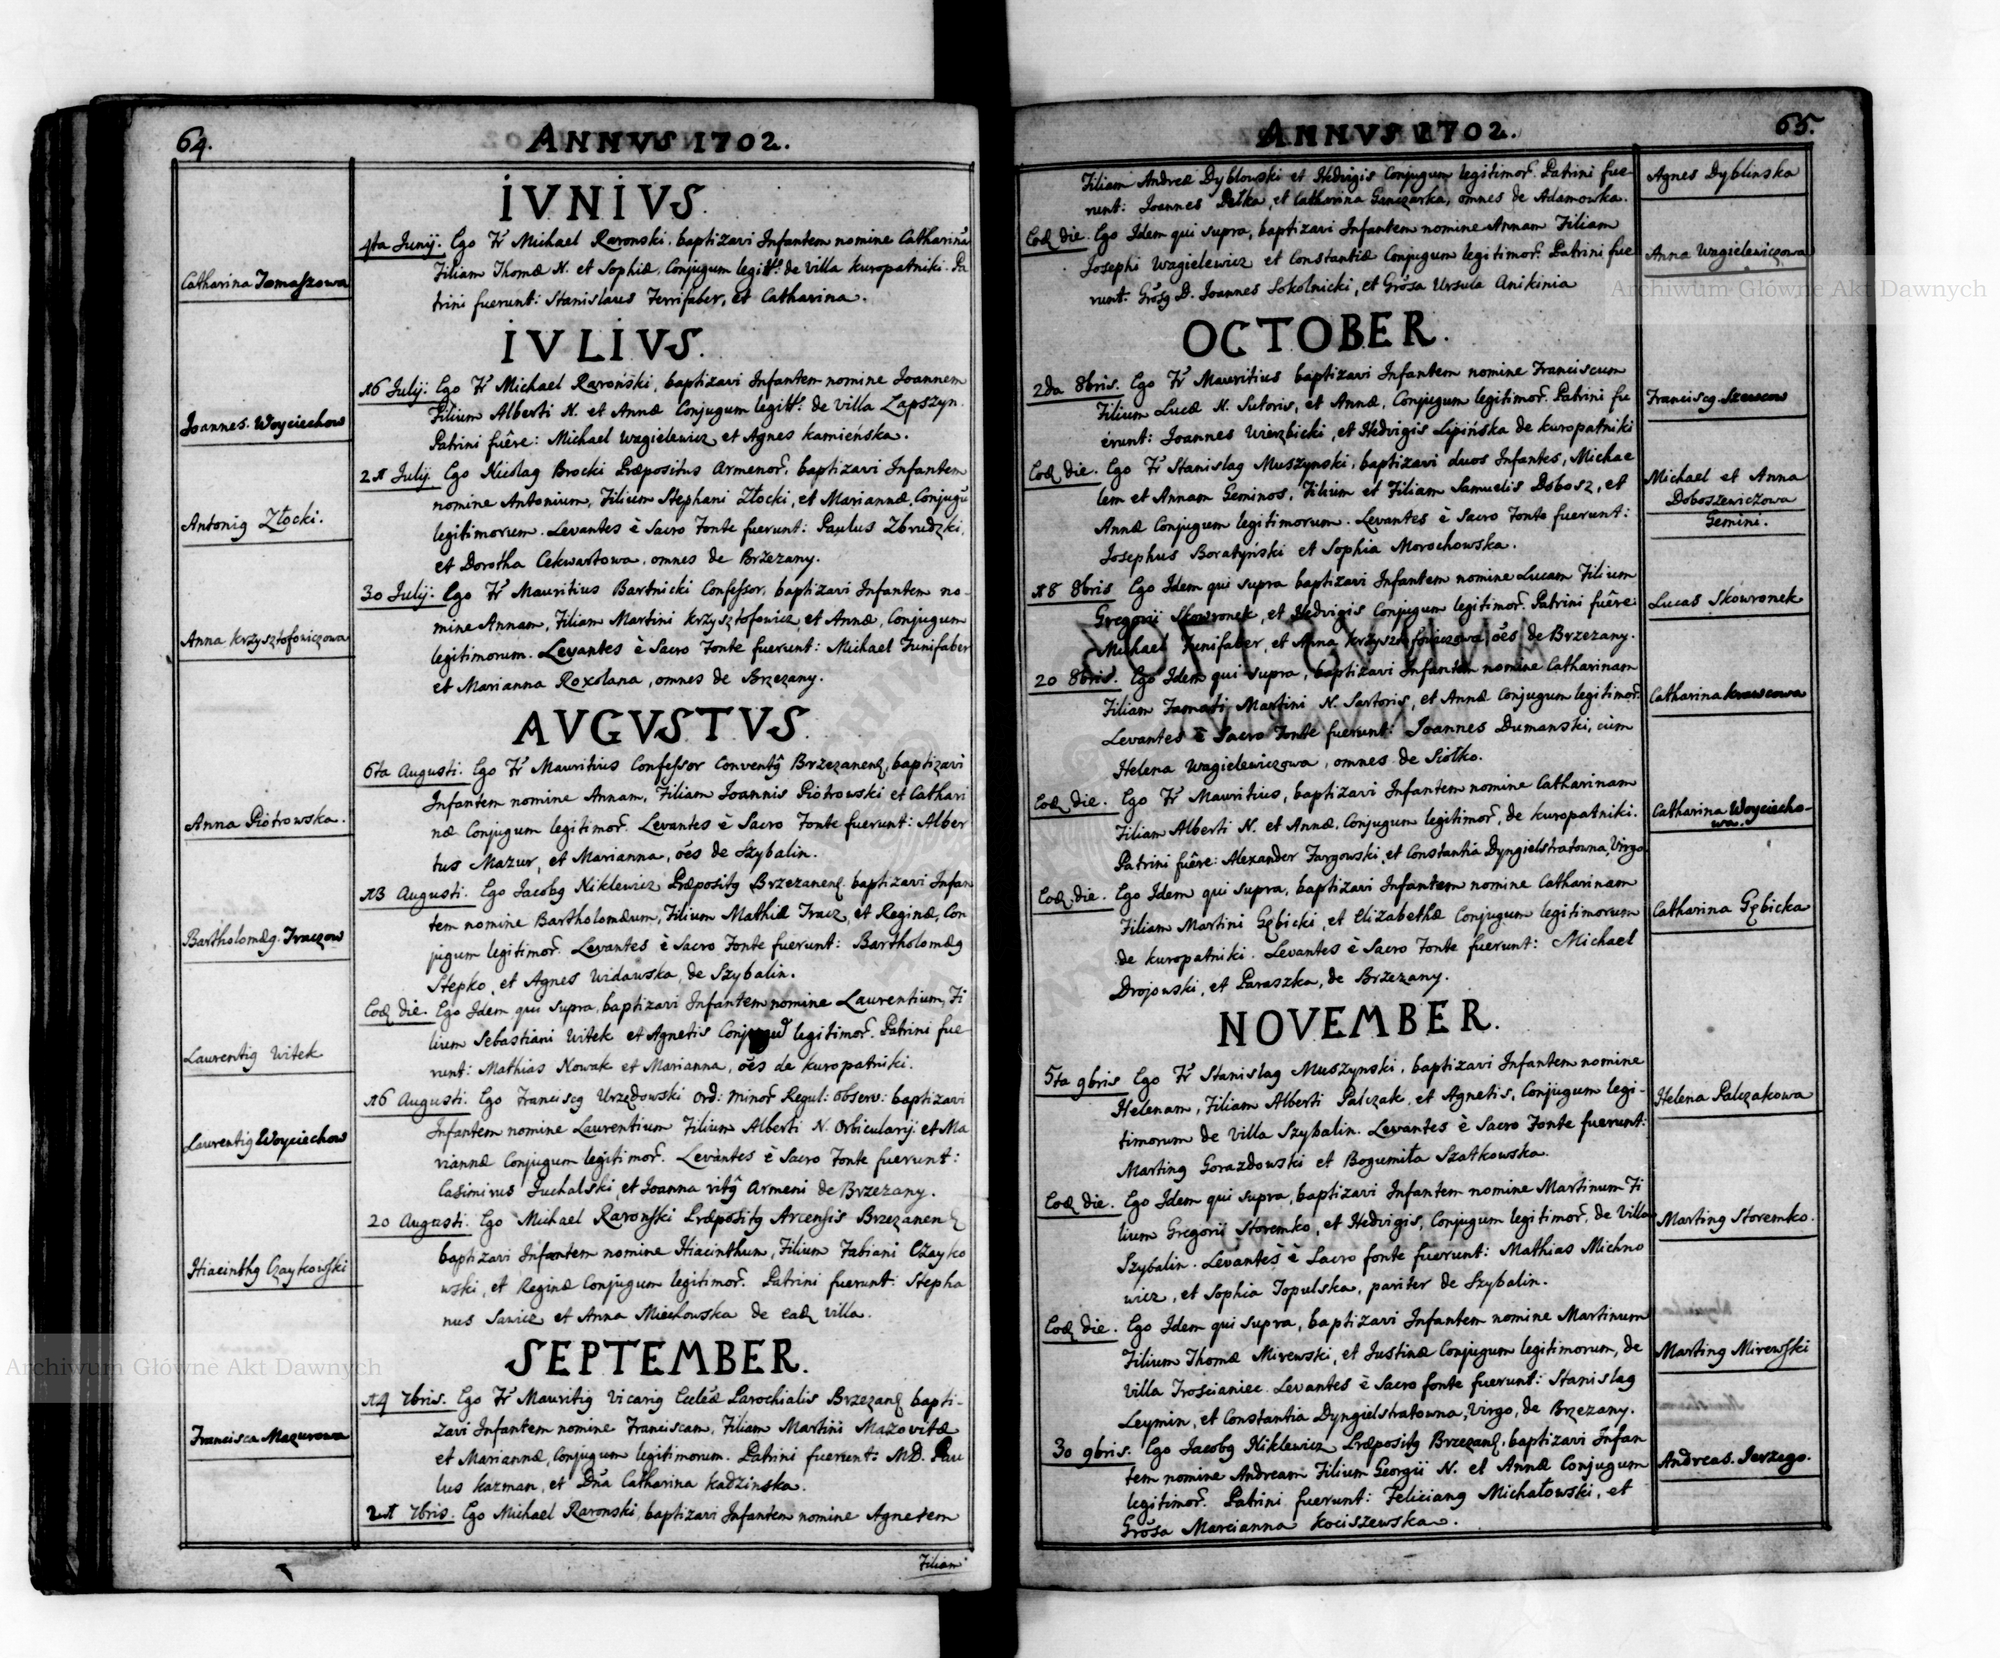 64.
ANNVS 1702.
IVNIVS.
Catharina Tomaszowa
4ta Junij. Ego Fr Michael Raronski, baptizavi Infantem nomine Catharinã
Filiam Thomæ N. et Sophiæ, Conjugum legitt: de villa Kuropatniki. Pa
trini fuerunt: Stanislaus Ferrifaber, et Catharina.
IVLIVS.
Joannes Woyciechow
16 Julij. Ego Fr Michael Raroński, baptizavi Infantem nomine Joannem
Filium Alberti N. et Annæ Conjugum legitt: de villa Lapszyn.
Patrini fuêre: Michael Wagielewicz et Agnes Kamieńska.
Antonig Złocki.
21 Julij. Ego Nicolag Brocki Præpositus Armenor, baptizavi Infantem
nomine Antonium, Filium Stephani Złocki, et Mariannæ, Conjugũ
legitimorum. Levantes è Sacro Fonte fuerunt: Paulus Zbrudzki,
et Dorotha Cekwartowa, omnes de Brzezany.
Anna Krzysztofowiczowa
30 Julij. Ego Fr Mauritius Bartnicki Confessor, baptizavi Infantem no-
mine Annam, Filiam Martini Krzysztofowicz, et Annæ, Conjugum
legitimorum. Levantes è Sacro Fonte fuerunt: Michael Funifaber
et Marianna Roxolana, omnes de Brzezany.
AVGVSTVS.
Anna Piotrowska.
6ta Augusti. Ego Fr Mauritius Confessor Conventg Brzezanen, baptizavi
Infantem nomine Annam, Filiam Joannis Piotrowski et Cathari
næ Conjugum legitimor. Levantes è Sacro Fonte fuerunt: Alber
tus Mazur, et Marianna, oẽs de Szybalin.
Bartholomæg. Traczow
13 Augusti. Ego Jacobg Niklewicz Præpositg Brzezanen. baptizavi Infan
tem nomine Bartholomæum, Filium Mathiæ Tracz, et Reginæ, Con
jugum legitimor. Levantes è Sacro Fonte fuerunt: Bartholomæg
Stepko, et Agnes Widawska, de Szybalin.
Laurentig Witek
Eod die. Ego Idem qui supra, baptizavi Infantem nomine Laurentium, Fi
lium Sebastiani Witek et Agnetis legitimor. Patrini fue
runt: Mathias Nowak et Marianna, oẽs de Kuropatniki.
Laurentig Woyciechow
16 Augusti. Ego Franciscg Urzędowski Ord: Minor Regul: Observ: baptizavi
Infantem nomine Laurentium Filium Alberti N. Orbicularij et Ma
riannæ Conjugum legitimor. Levantes è Sacro Fonte fuerunt:
Casimirus Suchalski, et Joanna ritg Armeni de Brzezany.
Hiacinthg Czaykowski
20 Augusti. Ego Michael Raronski Præpositg Arcensis Brzezanen
baptizavi Infantem nomine Hiacinthum, Filium Fabiani Czayko
wski, et Reginæ Conjugum legitimor. Patrini fuerunt: Stepha
nus Sawicz et Anna Miechowska de ead villa.
SEPTEMBER.
Francisca Mazurowa
14 7bris. Ego Fr Mauritig Vicarig Eccleæ Parochialis Brzezan bapti-
zavi Infantem nomine Franciscam, Filiam Martini Mazovitæ
et Mariannæ, Conjugum legitimorum. Patrini fuerunt: MD. Pau
lus Kazman, et Dña Catharina Kadzinska.
21 7bris. Ego Michael Raronski, baptizavi Infantem nomine Agnetem
Filiam
ANNVS 1702.
65.
Agnes Dyblinska
Filiam Andreæ Dyblowski et Hedvigis Conjugum legitimor. Patrini fue-
runt: Joannes Pełka, et Catharina Ganczarka, omnes de Adamowka.
Anna Wagielewiczowa
Eod die. Ego Idem qui supra, baptizavi Infantem nomine Annam Filiam
Josephi Wagielewicz et Constantiæ Conjugum legitimor. Patrini fue
runt: Grõsg D. Joannes Sokolnicki, et Grõsa Ursula Anikinia
OCTOBER.
Franciscg Szewcow
2da 8bris. Ego Fr Mauritius baptizavi Infantem nomine Franciscum
Filium Lucæ N. Sutoris, et Annæ, Conjugum legitimor. Patrini fu
erunt: Joannes Wierzbicki, et Hedvigis Lipińska de Kuropatniki
Michael et Anna
Doboszewiczowa
Gemini.
Eod die. Ego Fr Stanislag Muszynski, baptizavi duos Infantes, Michae
lem et Annam Geminos, Filium et Filiam Samuelis Dobosz, et
Annæ Conjugum legitimorum. Levantes è Sacro Fonte fuerunt:
Josephus Boratyński et Sophia Morochowska.
Lucas Skowronek
18 8bris Ego Idem qui supra baptizavi Infantem nomine Lucam Filium
Gregorii Skowronek, et Hedvigis Conjugum legitimor. Patrini fuêre:
Michael Funifaber, et Anna Krzysztofowiczowa, oẽs de Brzezany.
Catharina Krawcowa
20 8bris. Ego Idem qui supra, baptizavi Infantem nomine Catharinam
Filiam Famati Martini N. Sartoris, et Annæ Conjugum legitimor.
Levantes è Sacro Fonte fuerunt: Joannes Dumanski, cum
Helena Wagielewiczowa, omnes de Siołko.
Catharina Woyciecho-
wa.
Eod die. Ego Fr Mauritius, baptizavi Infantem nomine Catharinam
Filiam Alberti N. et Annæ, Conjugum legitimor, de Kuropatniki.
Patrini fuêre: Alexander Targowski, et Constantia Dyngielstratowna, Virgo
Catharina Gębicka
Eod die. Ego Idem qui supra, baptizavi Infantem nomine Catharinam
Filiam Martini Gębicki, et Elizabethæ Conjugum legitimorum
de Kuropatniki. Levantes è Sacro Fonte fuerunt: Michael
Drojowski, et Paraszka, de Brzezany.
NOVEMBER.
Helena Palczakowa
5ta 9bris Ego Fr Stanislag Muszynski, baptizavi Infantem nomine
Helenam, Filiam Alberti Palczak, et Agnetis, Conjugum legi-
timorum de Villa Szybalin. Levantes è Sacro Fonte fuerunt:
Marting Gorazdowski et Bogumiła Szatkowska.
Marting Storemko.
Eod die. Ego Idem qui supra, baptizavi Infantem nomine Martinum Fi
lium Gregorii Storemko, et Hedvigis, Conjugum legitimor, de Villa
Szybalin. Levantes è Sacro fonte fuerunt: Mathias Michno
wicz, et Sophia Topulska, pariter de Szybalin.
Marting Mirewski
Eod die. Ego Idem qui supra, baptizavi Infantem nomine Martinum
Filium Thomæ Mirewski, et Justinæ Conjugum legitimorum, de
Villa Trościaniec. Levantes è Sacro fonte fuerunt: Stanislag
Leymin, et Constantia Dyngielstratowna, Virgo, de Brzezany.
Andreas Jerzego.
30 9bris. Ego Jacobg Niklewicz Præpositg Brzezan, baptizavi Infan
tem nomine Andream Filium Georgii N. et Annæ Conjugum
legitimor. Patrini fuerunt: Feliciang Michałowski, et
Grõsa Marcianna Kociszewska.
Archiwum Główne Akt Dawnych
Archiwum Główne Akt Dawnych